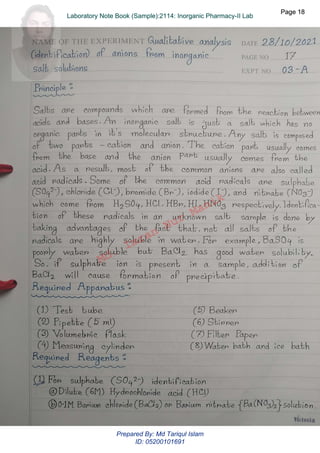 Page 18
Laboratory Note Book (Sample):2114: Inorganic Pharmacy-II Lab
NAME OF THE EXPERIMENT Qualitative analysis DATE 28/10/2021
(identification) of anions from inorganic PAGE NO 17
salt solutions EXPT NO 03-A
Principle:
Salts are compounds which are formed from the reaction between
acids and bases. An inorganic salt is just a salt which has no
organic parts in it's molecular structure. Any salt is composed
of two parts - cation and anion. The cation part usually comes
from the base and the anion part usually comes from the
acid. As a result, most of the common anions are also called
acid radicals. Some of the common acid radicals are sulphate
(SO₄²⁻), chloride (Cl⁻), bromide (Br⁻), iodide (I⁻), and nitrate (NO₃⁻)
which come from H₂SO₄, HCl, HBr, HI, HNO₃ respectively. Identifica-
tion of these radicals in an unknown salt sample is done by
taking advantages of the fact that, not all salts of the
radicals are highly soluble in water. For example, BaSO₄ is
poorly water soluble but BaCl₂ has good water solubility.
So, if sulphate ion is present in a sample, addition of
BaCl₂ will cause formation of precipitate.
Required Apparatus:
(1) Test tube (5) Beaker
(2) Pipette (5 ml) (6) Stirrer
(3) Volumetric flask (7) Filter Paper
(4) Measuring cylinder (8) Water bath and ice bath
Required Reagents:
(1) For sulphate (SO₄²⁻) identification
ⓐ Dilute (6M) Hydrochloride acid (HCl)
ⓑ 0.1M Barium chloride (BaCl₂) or Barium nitrate {Ba(NO₃)₂} solution.
Prepared By: Md Tariqul Islam
ID: 05200101691